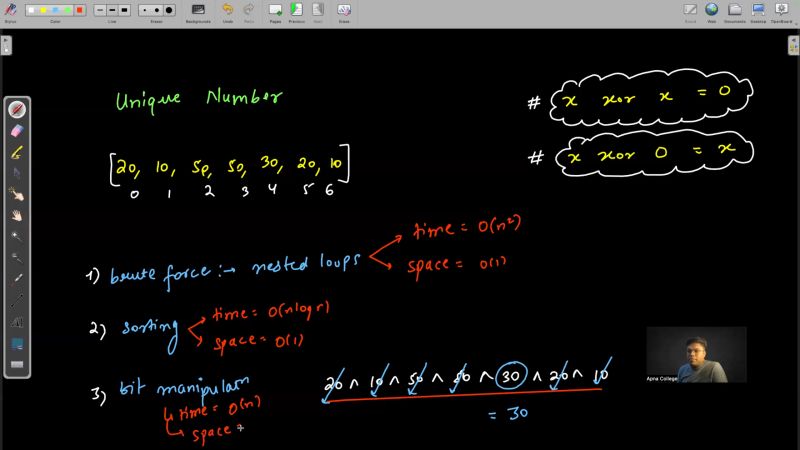 Stylus
Color
Line
Eraser
Backgrounds
Undo
Redo
Pages
Previous
Next
Erase
Board
Web
Documents
Desktop
OpenBoard
Unique Number
# x xor x = 0
# x xor 0 = x
[20, 10, 50, 50, 30, 20, 10]
0 1 2 3 4 5 6
1) brute force :→ nested loops
time = O(n²)
space = O(1)
2) sorting
time = O(nlogn)
space = O(1)
3) bit manipulatn
↳ time = O(n)
↳ space =
20 ^ 10 ^ 50 ^ 50 ^ 30 ^ 20 ^ 10
= 30
Apna College